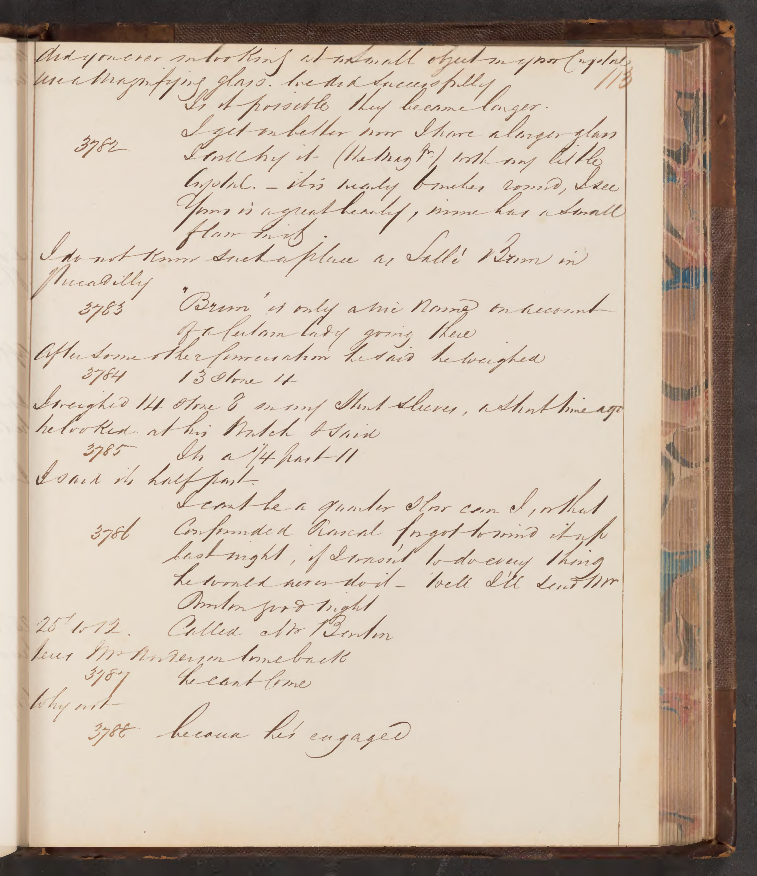 Did you ever in looking at a small object in your Crystal
use a Magnifying glass. We did successfully
113
Is it possible they became larger.
I get on better now I have a larger glass
3782 I will try it (the Mag gr) with my little
Crystal. – it is nearly 6 inches round, I see
Yours is a great beauty, mine has a small
flaw in it.
I do not know such a place as Sallé Brun in
Piccadilly
3783 "Brun" is only a nic Name on account
of a Certain Lady going there
After some other Conversation he said he weighed
3784 13 Stone 4
I weighed 14 Stone 8 in my Shirt Sleeves, a short time ago
he looked at his Watch & said
3785 Its a 1/4 past 11
I said its half past –
I cant be a quarter Slow can I, or that
3786 Confounded Rascal forgot to wind it up
last night, if I wasn't to do every thing
he would never do it – Well I'll send Mr
Benton good night
25 to 12. Called Mr Benton
Mr Anderson come back
3787 he cant Come
Why not –
3788 because he's engaged